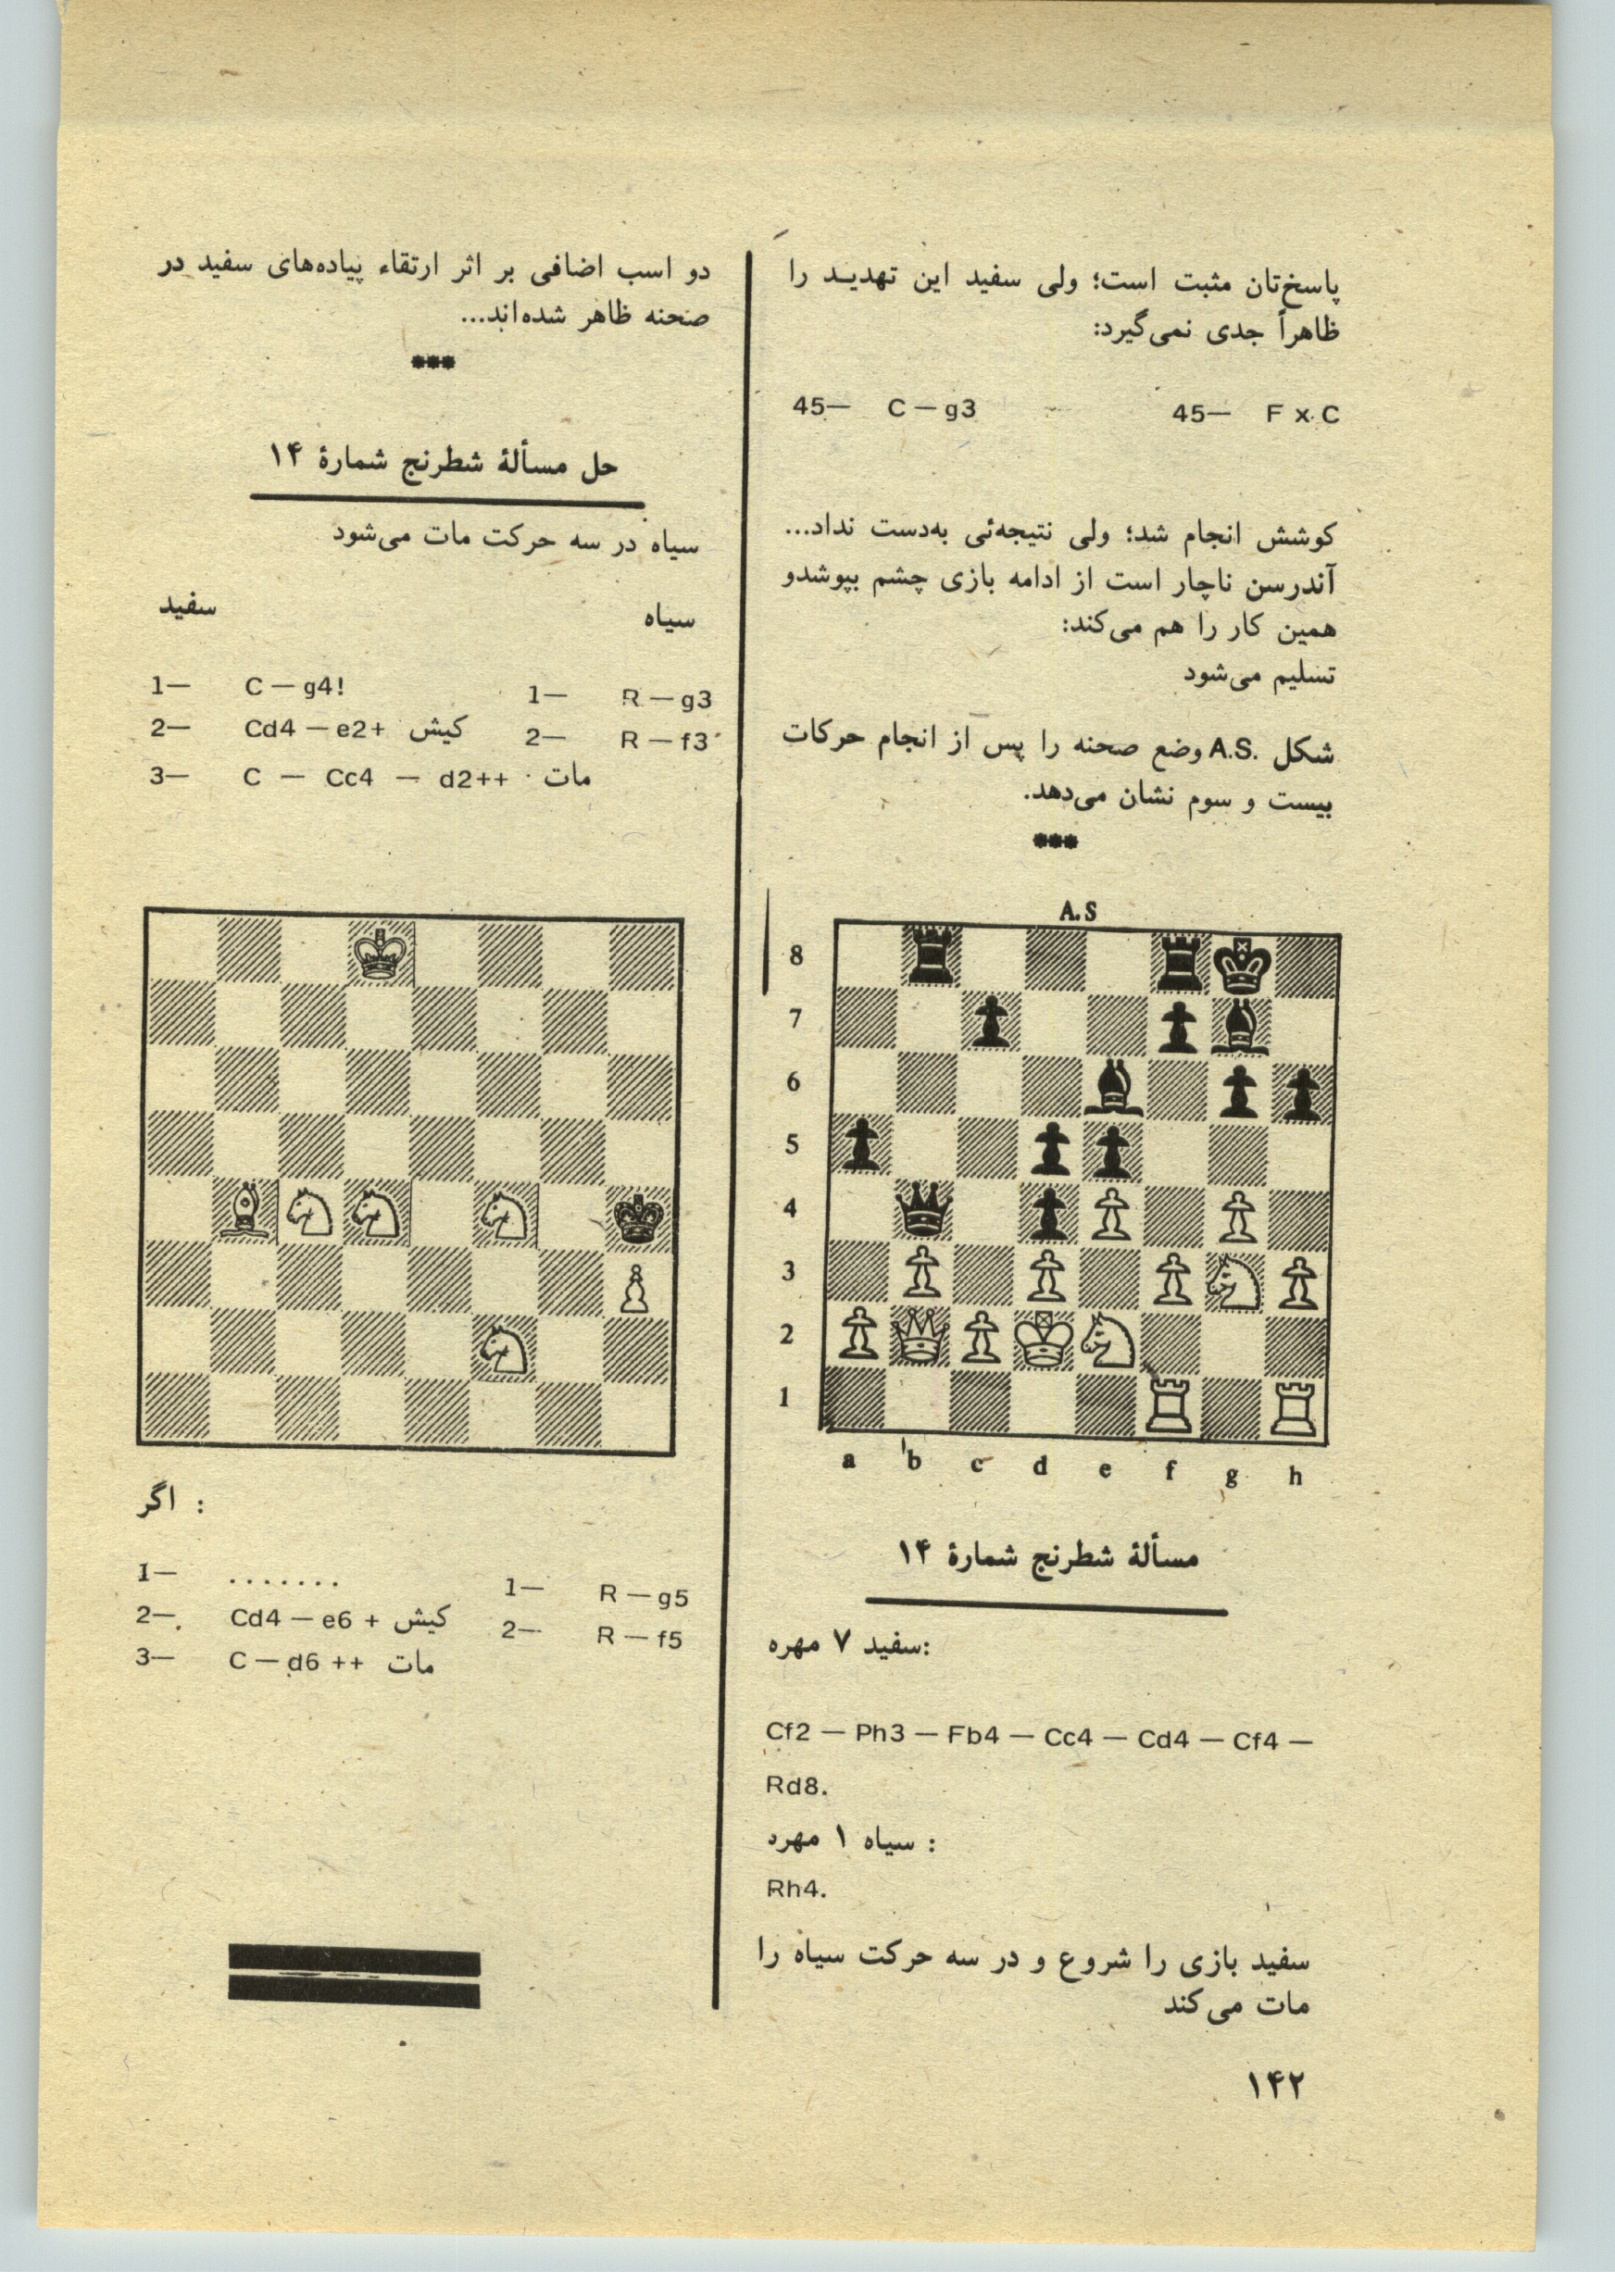 پاسخ‌تان مثبت است؛ ولی سفید این تهدید را
ظاهراً جدی نمی‌گیرد:
45— C — g3 45— F x C
کوشش انجام شد؛ ولی نتیجه‌ئی به‌دست نداد...
آندرسن ناچار است از ادامه بازی چشم بپوشدو
همین کار را هم می‌کند:
تسلیم می‌شود
شکل A.S. وضع صحنه را پس از انجام حرکات
بیست و سوم نشان می‌دهد.
***
A.S
8
7
6
5
4
3
2
1
a b c d e f g h
مسألۀ شطرنج شمارۀ ۱۴
سفید ۷ مهره:
Cf2 — Ph3 — Fb4 — Cc4 — Cd4 — Cf4 —
Rd8.
سیاه ۱ مهرد :
Rh4.
سفید بازی را شروع و در سه حرکت سیاه را
مات می‌کند
۱۴۲
دو اسب اضافی بر اثر ارتقاء پیاده‌های سفید در
صحنه ظاهر شده‌اند...
***
حل مسألۀ شطرنج شمارۀ ۱۴
سیاه در سه حرکت مات می‌شود
سفید سیاه
1— C — g4! 1— R — g3
2— Cd4 — e2+ کیش 2— R — f3
3— C — Cc4 — d2++ مات
اگر :
1— ....... 1— R — g5
2— Cd4 — e6 + کیش 2— R — f5
3— C — d6 ++ مات